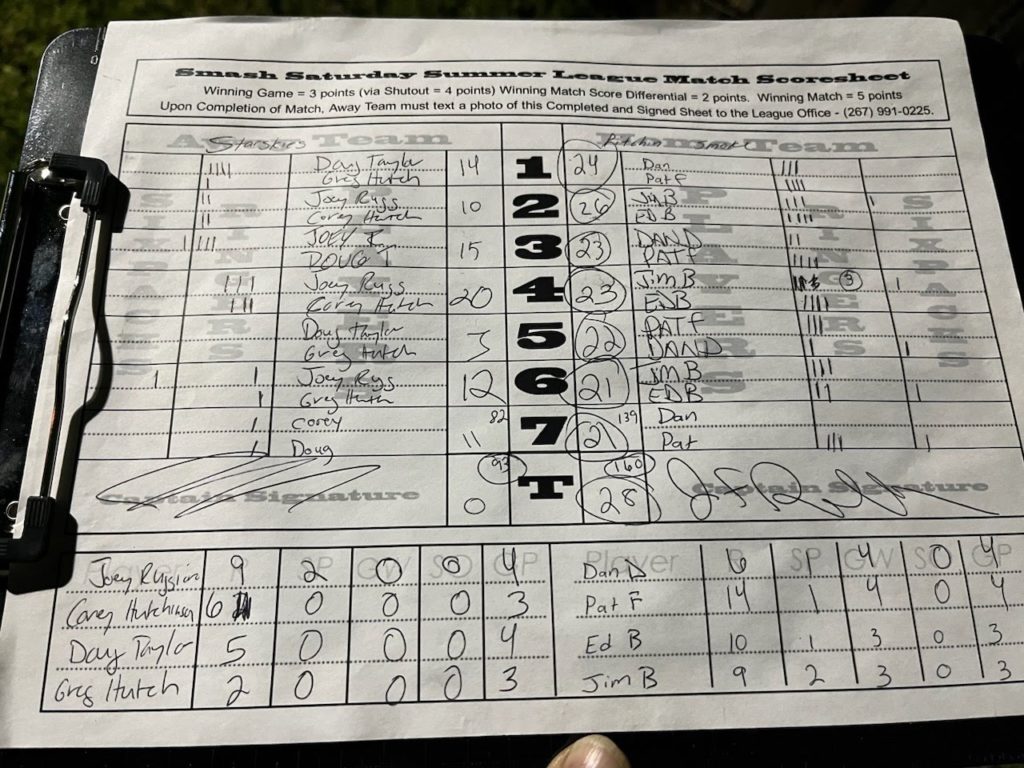 Smash Saturday Summer League Match Scoresheet
Winning Game = 3 points (via Shutout = 4 points) Winning Match Score Differential = 2 points. Winning Match = 5 points
Upon Completion of Match, Away Team must text a photo of this Completed and Signed Sheet to the League Office - (267) 991-0225.
Away Team Starskies Home Team Kitchin smoke
Doug Taylor 14 1 24 Dan
Greg Hutch Pat F
Joey Russ 10 2 26 Jim B
Corey Hutch Ed B
JOEY R. 15 3 23 DAN D
DOUG T. PAT F
Joey Russ 20 4 23 Jim B 3
Corey Hutch Ed B
Doug Taylor 3 5 22 PAT F
Greg Hutch DAN D
Joey Rus 12 6 21 JIM B
Greg Hutch ED B
Corey 82 7 139 Dan
Doug 11 21 Pat
93 T 160
Captain Signature 0 28 Captain Signature
Player R SP GW SO GP Player R SP GW SO GP
Joey Russian 9 2 0 0 4 Dan D 6 4 0 4
Corey Hutchinson 6 0 0 0 3 Pat F 14 1 4 0 4
Doug Taylor 5 0 0 0 4 Ed B 10 1 3 0 3
Greg Hutch 2 0 0 0 3 Jim B 9 2 3 0 3